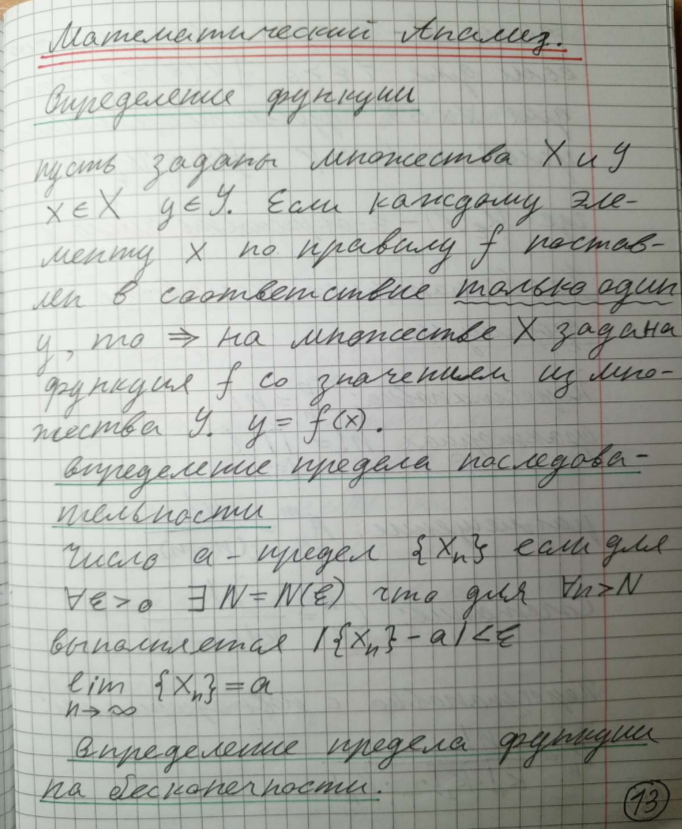 Математический Анализ.
Определение функции
пусть заданы множества X и Y
x ∈ X y ∈ Y. Если каждому эле-
менту x по правилу f постав-
лен в соответствие только один
y, то ⇒ на множестве X задана
функция f со значением из мно-
жества Y. y = f(x).
Определение предела последова-
тельности
Число a - предел {Xn} если для
∀ε>0 ∃ N = N(ε) что для ∀n>N
выполняется |{Xn} - a| < ε
lim {Xn} = a
n→∞
Определение предела функции
на бесконечности.
13